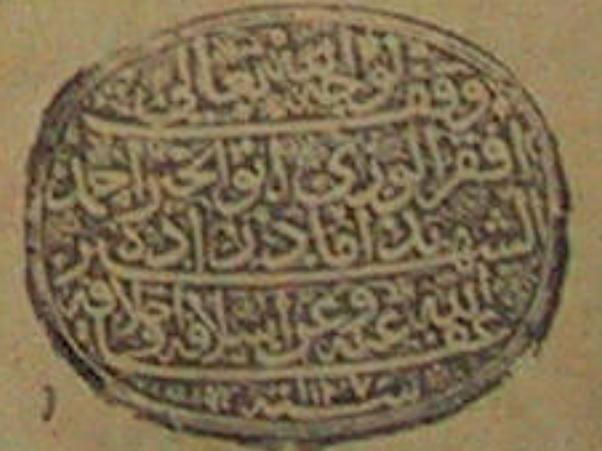 وقف لوجه الله تعالى
افقر الورى ابو الخير احمد
الشهير بداماد زاده
عفى الله عنه وعن اسلافه واخلافه
سنة